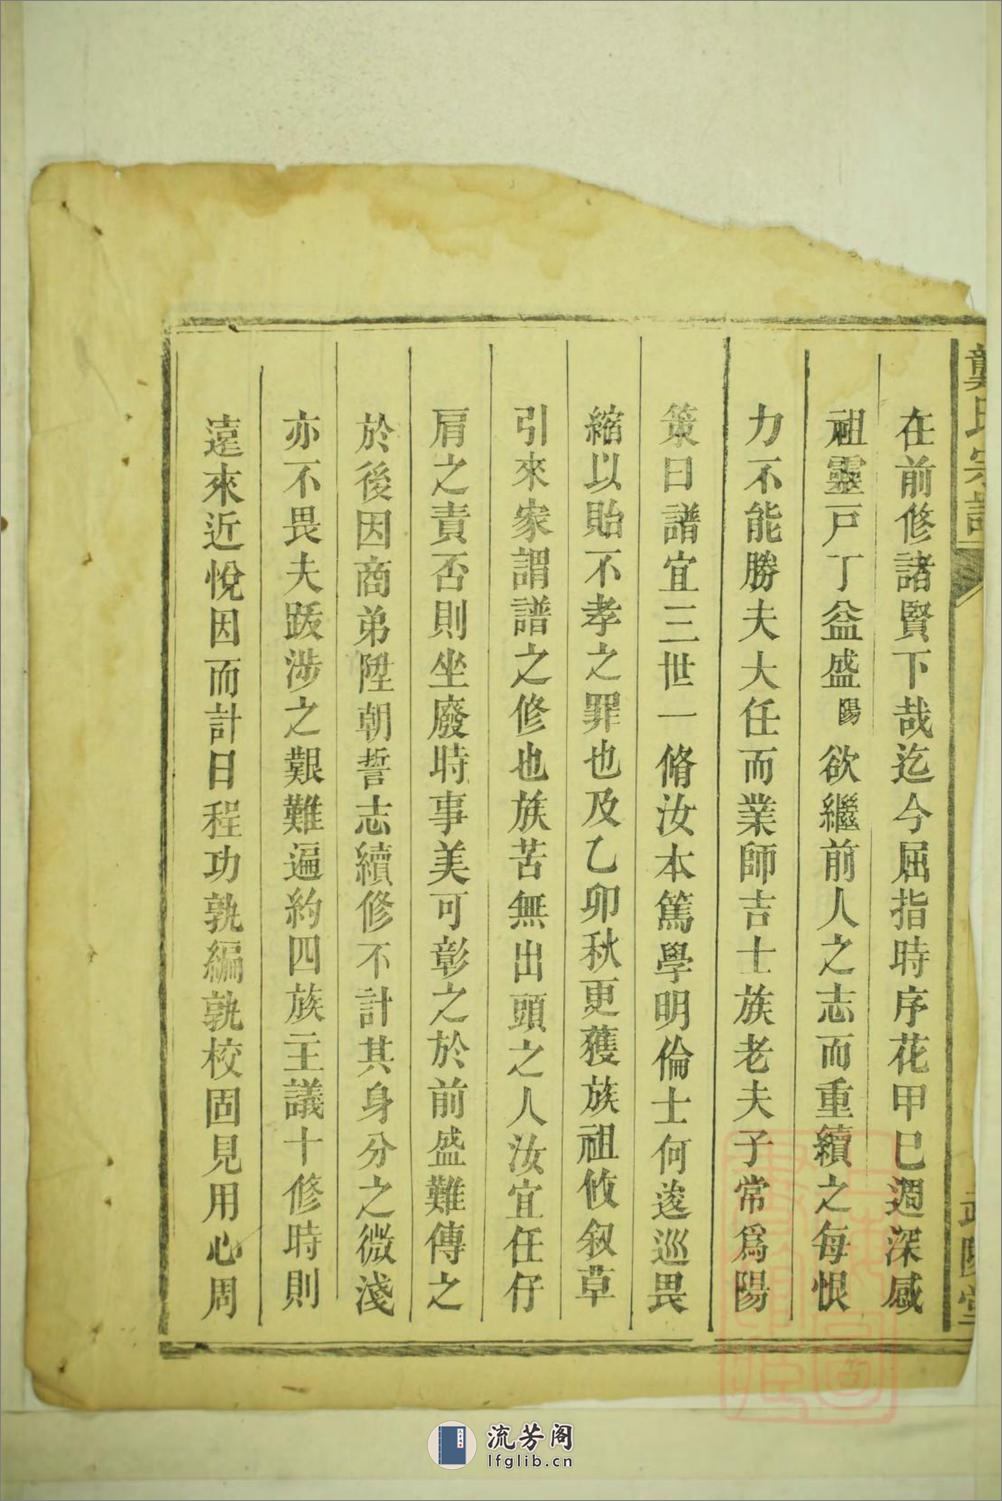 龔氏宗譜
武陽堂
在前修諸賢下哉迄今屈指時序花甲已週深感
祖靈戸丁益盛陽欲繼前人之志而重續之每恨
力不能勝夫大任而業師吉士族老夫子常爲陽
策曰譜宜三世一脩汝本篤學明倫士何逡巡畏
縮以貽不孝之罪也及乙卯秋更獲族祖攸叙草
引來家謂譜之修也族苦無出頭之人汝宜任仔
肩之責否則坐廢時事美可彰之於前盛難傳之
於後因商弟陞朝誓志續修不計其身分之微淺
亦不畏夫跋涉之艱難遍約四族主議十修時則
遠來近悅因而計日程功孰編孰校固見用心周
流芳阁
lfglib.cn